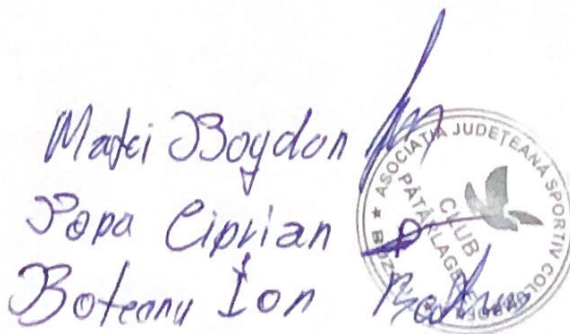 Matei Bogdan
Popa Ciprian
Boteanu Ion
ASOCIAȚIA JUDEȚEANĂ SPORTIV
CLUB